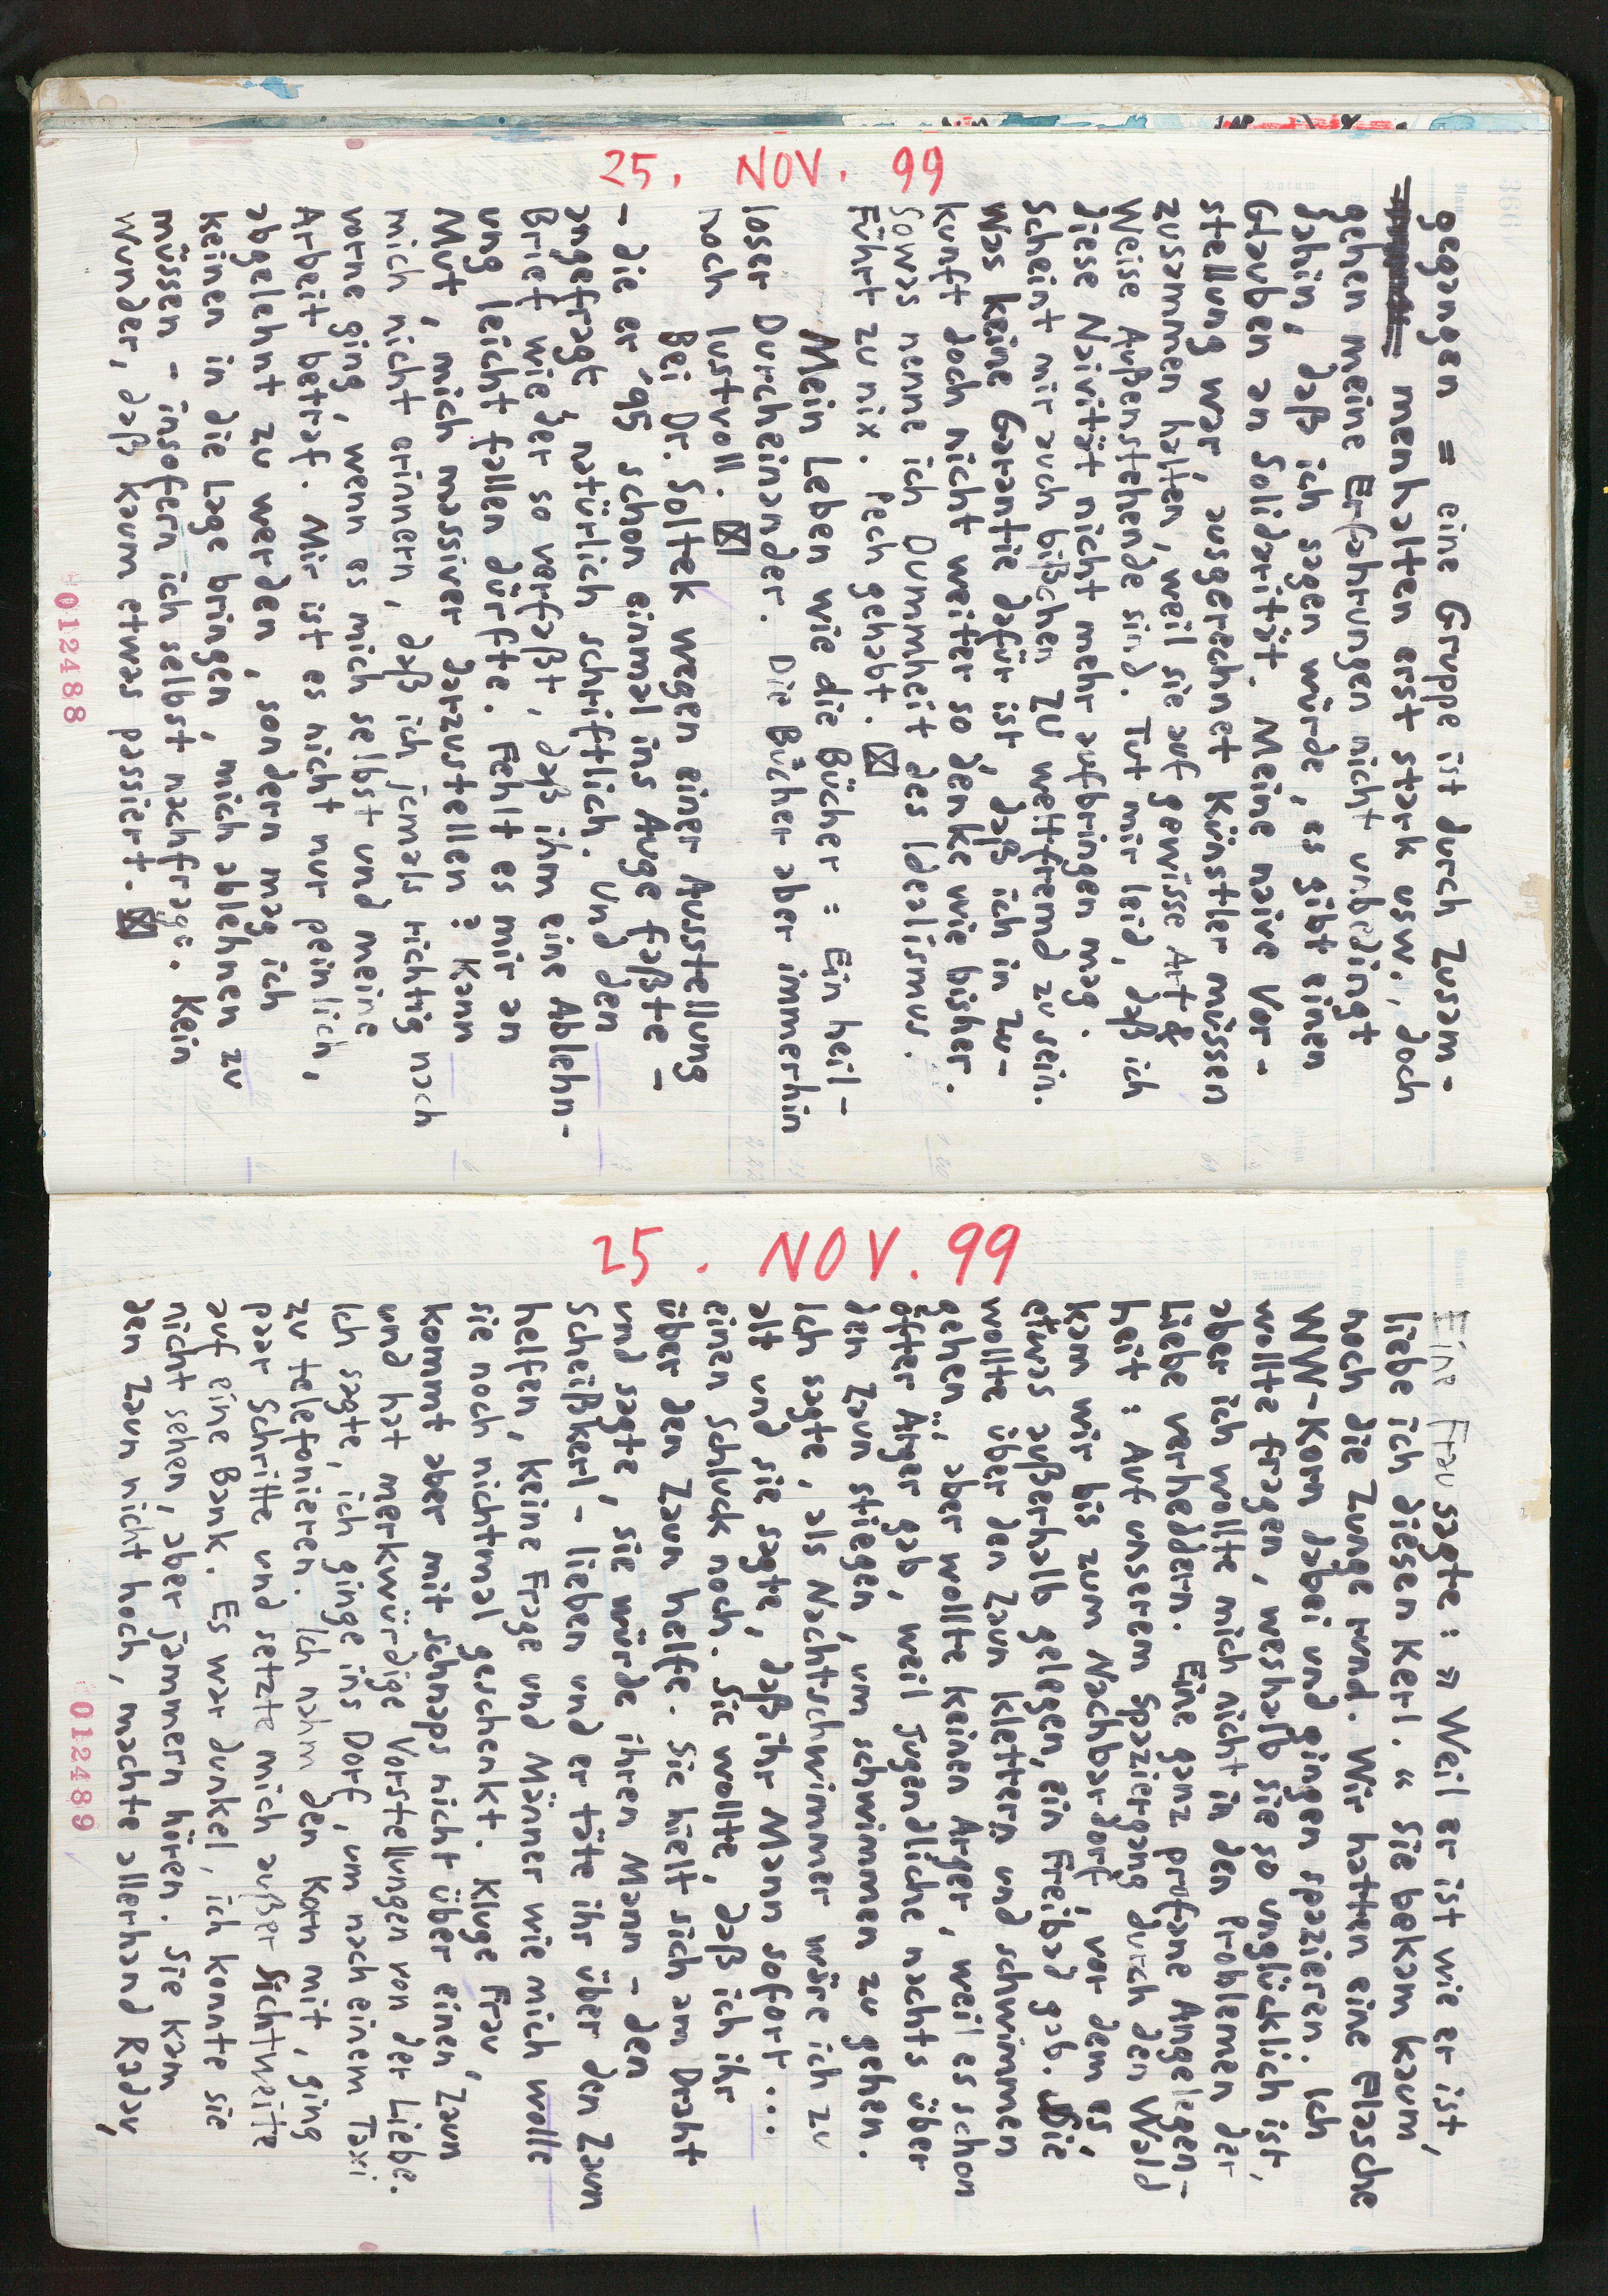 25. NOV. 99
gegangen = eine Gruppe ist durch Zusam-
menhalten erst stark usw., doch
gehen meine Erfahrungen nicht unbedingt
dahin, daß ich sagen würde, es gibt einen
Glauben an Solidarität. Meine naive Vor-
stellung war, ausgerechnet Künstler müssen
zusammen halten, weil sie auf gewisse Art &
Weise Außenstehende sind. Tut mir leid, daß ich
diese Naivität nicht mehr aufbringen mag.
Scheint mir auch bißchen zu weltfremd zu sein.
Was keine Garantie dafür ist, daß ich in Zu-
kunft doch nicht weiter so denke wie bisher.
Sowas nenne ich Dummheit des Idealismus.
Führt zu nix. Pech gehabt. ☒
Mein Leben wie die Bücher = Ein heil-
loser Durcheinander. Die Bücher aber immerhin
noch lustvoll. ☒
Bei Dr. Soltek wegen einer Ausstellung
- die er '95 schon einmal ins Auge faßte -
angefragt natürlich schriftlich. Und den
Brief wieder so verfaßt, daß ihm eine Ablehn-
ung leicht fallen dürfte. Fehlt es mir an
Mut, mich massiver darzustellen? Kann
mich nicht erinnern, daß ich jemals richtig nach
vorne ging, wenn es mich selbst und meine
Arbeit betraf. Mir ist es nicht nur peinlich,
abgelehnt zu werden, sondern mag ich
keinen in die Lage bringen, mich ablehnen zu
müssen - insofern ich selbst nachfrage. Kein
Wunder, daß kaum etwas passiert. ☒
012488
25. NOV. 99
Eine Frau sagte: »Weil er ist wie er ist,
liebe ich diesen Kerl.« Sie bekam kaum
noch die Zunge rund. Wir hatten eine Flasche
WW-Korn dabei und gingen spazieren. Ich
wollte fragen, weshalb sie so unglücklich ist,
aber ich wollte mich nicht in den Problemen der
Liebe verheddern. Eine ganz profane Angelegen-
heit: Auf unserem Spaziergang durch den Wald
kam wir bis zum Nachbardorf, vor dem es,
etwas außerhalb gelegen, ein Freibad gab. Sie
wollte über den Zaun klettern und schwimmen
gehen, aber wollte keinen Ärger, weil es schon
öfter Ärger gab, weil Jugendliche nachts über
den Zaun stiegen, um schwimmen zu gehen.
Ich sagte, als Nachtschwimmer wäre ich zu
alt und sie sagte, daß ihr Mann sofort ...
einen Schluck noch. Sie wollte, daß ich ihr
über den Zaun helfe. Sie hielt sich am Draht
und sagte, sie würde ihren Mann - den
Scheißkerl - lieben und er täte ihr über den Zaun
helfen, keine Frage und Männer wie mich wolle
sie noch nichtmal geschenkt. Kluge Frau,
kommt aber mit Schnaps nicht über einen Zaun
und hat merkwürdige Vorstellungen von der Liebe.
Ich sagte, ich ginge ins Dorf, um nach einem Taxi
zu telefonieren. Ich nahm den Korn mit, ging
paar Schritte und setzte mich außer Sichtweite
auf eine Bank. Es war dunkel, ich konnte sie
nicht sehen, aber jammern hören. Sie kam
den Zaun nicht hoch, machte allerhand Radau,
012489